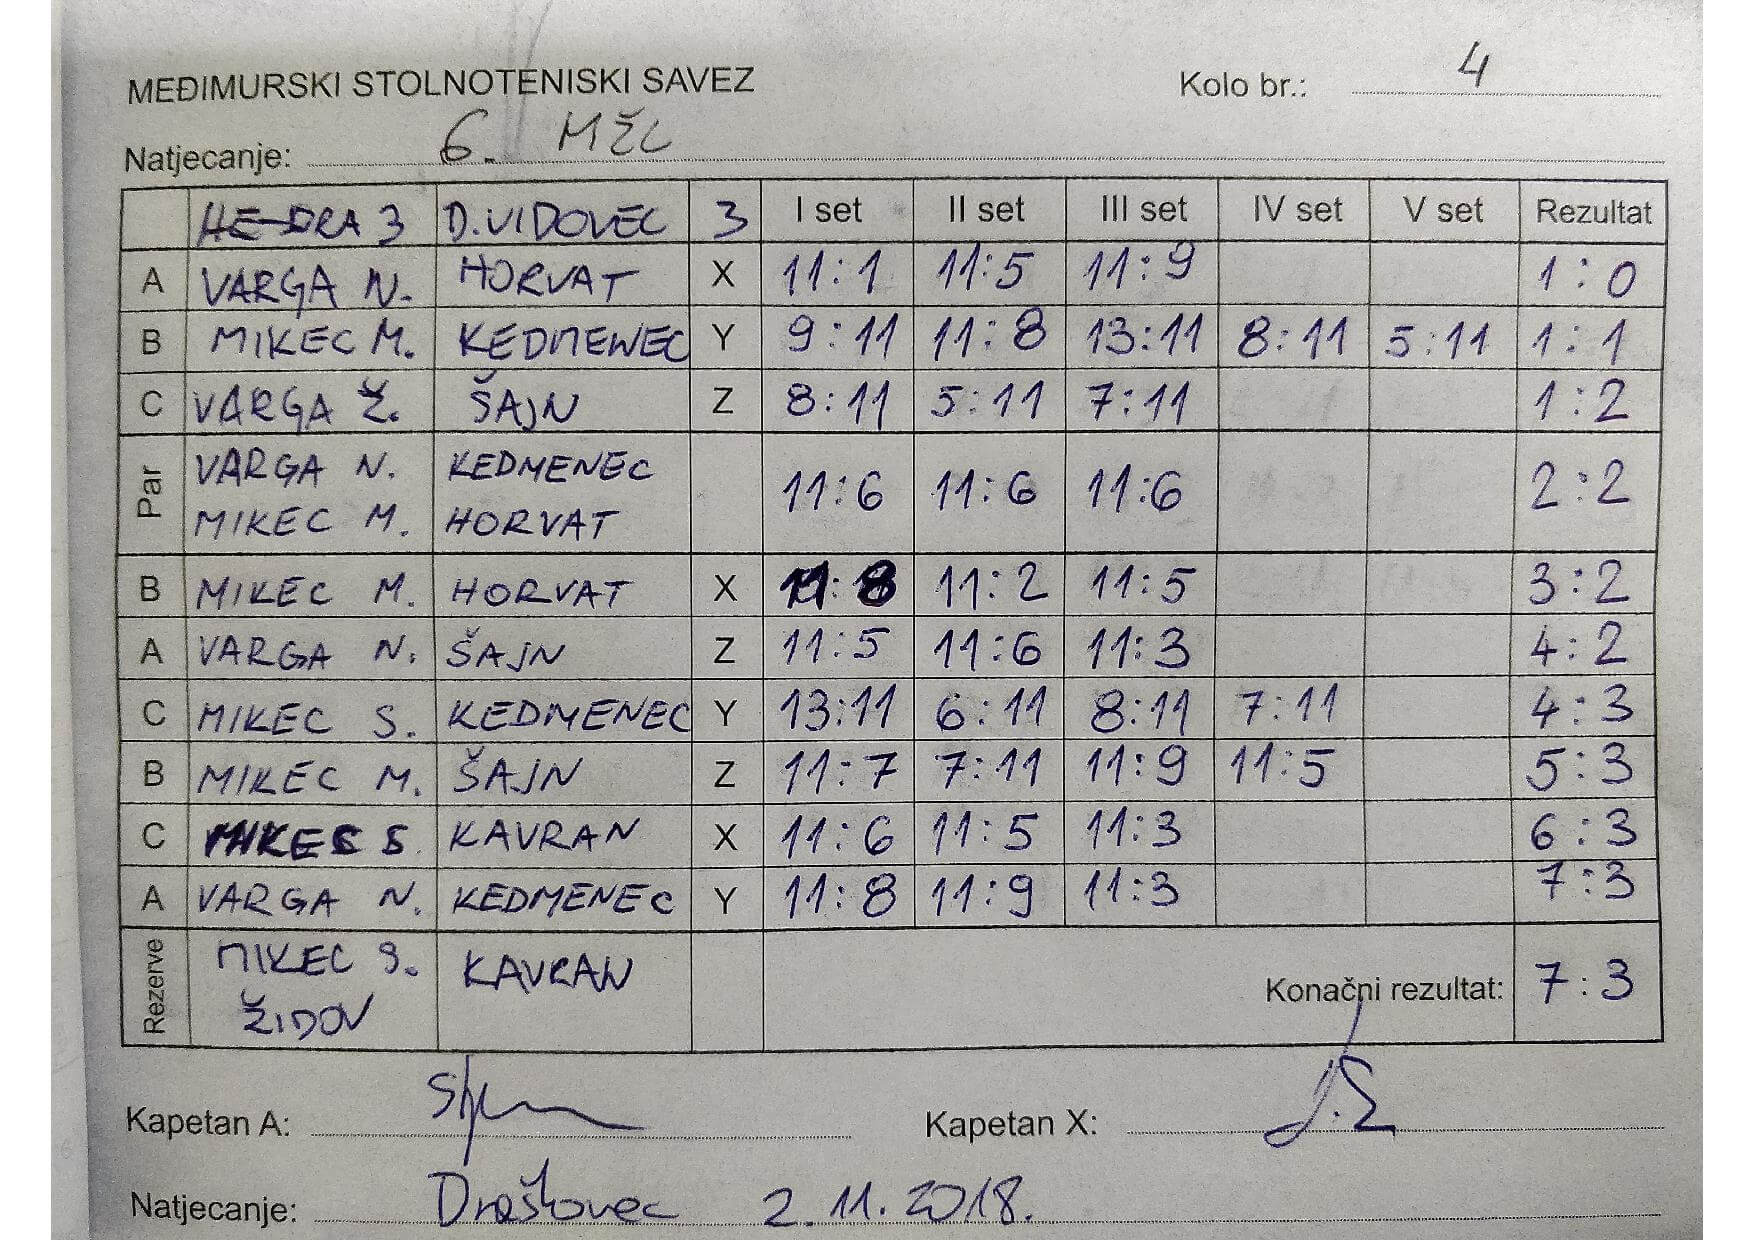 MEĐIMURSKI STOLNOTENISKI SAVEZ Kolo br.: 4
Natjecanje: 6. MŽL
HE-DRA 3 D.VIDOVEC 3 I set II set III set IV set V set Rezultat
A VARGA N. HORVAT X 11:1 11:5 11:9 1:0
B MIKEC M. KEDMENEC Y 9:11 11:8 13:11 8:11 5:11 1:1
C VARGA Ž. ŠAJN Z 8:11 5:11 7:11 1:2
Par VARGA N. KEDMENEC 11:6 11:6 11:6 2:2
MIKEC M. HORVAT
B MIKEC M. HORVAT X 11:8 11:2 11:5 3:2
A VARGA N. ŠAJN Z 11:5 11:6 11:3 4:2
C MIKEC S. KEDMENEC Y 13:11 6:11 8:11 7:11 4:3
B MIKEC M. ŠAJN Z 11:7 7:11 11:9 11:5 5:3
C MIKEC S KAVRAN X 11:6 11:5 11:3 6:3
A VARGA N. KEDMENEC Y 11:8 11:9 11:3 7:3
Rezerve MIKEC S. KAVRAN Konačni rezultat: 7:3
ŽIDOV
Kapetan A: Kapetan X:
Natjecanje: Draškovec 2.11.2018.